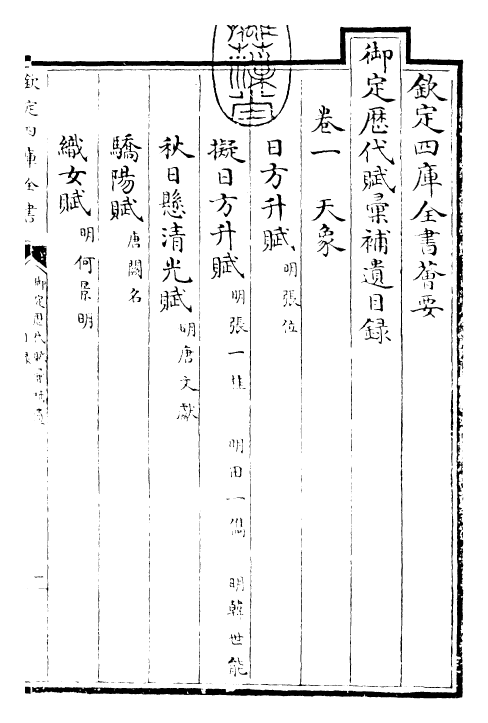 欽定四庫全書薈要
御定歷代賦彙補遺目録
卷一　天象
日方升賦 明張位
擬日方升賦 明張一桂　明田一儁　明韓世能
秋日懸清光賦 明唐文獻
驕陽賦 唐闕名
織女賦 明何景明
欽定四庫全書